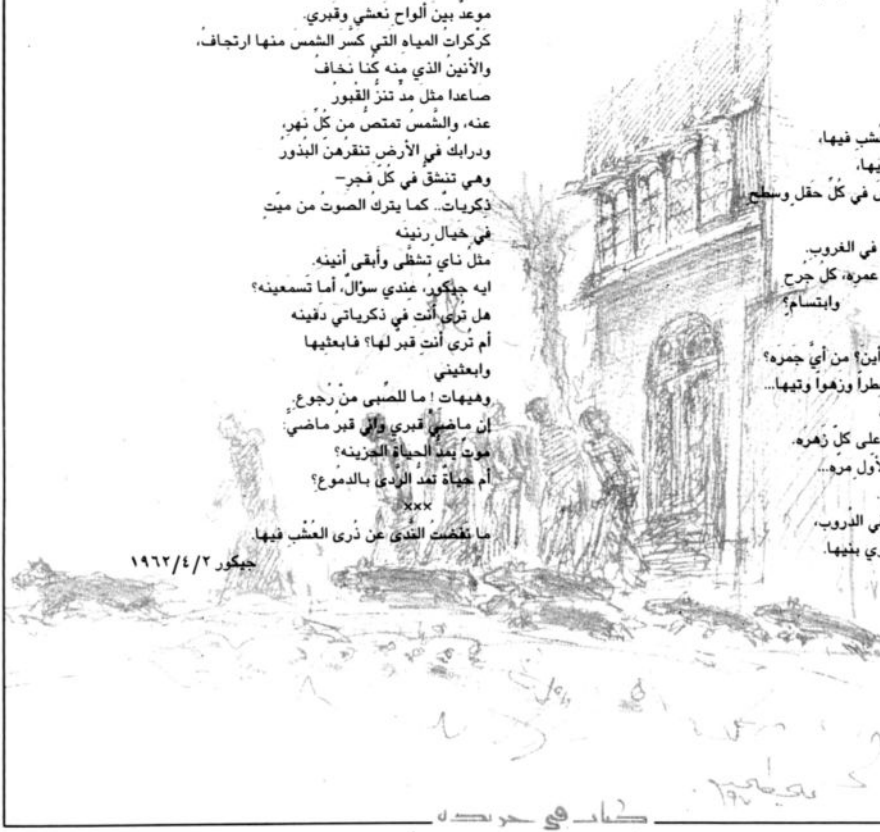 ـشب فيها،
ـيها،
في كُلِّ حقلٍ وسطح
في الغروب.
عمرِه، كلُّ جُرح
وابتسام؟
أين؟ من أيِّ جمره؟
ـطراً وزهواً وتيها...
على كلّ زهره.
لأوّل مرّه...
ـي الدروب،
ـري بنيها.
موعدٌ بين ألواح نعشي وقبري.
كَرْكراتُ المياهِ التي كسَّرَ الشمسَ منها ارتجافُ،
والأنينُ الذي مِنه كُنا نَخافُ
صاعدا مثلَ مدٍّ تنزُّ القُبورُ
عنه، والشَّمسُ تمتصُّ من كُلِّ نَهرِ،
ودرابكُ في الأرضِ تنقرُهنَّ البُذورُ
وهي تنشقُّ في كُلِّ فجرِ–
ذكرياتٌ.. كما يتركُ الصوتُ من ميّتٍ
في خيالٍ رنينَه
مثلَ نايٍ تشظَّى وأبقى أنينَه.
ايه جيكورُ، عندي سؤالٌ، أما تسمعينه؟
هل تُرى أنتِ في ذكرياتي دفينه
أم تُرى أنتِ قبرٌ لها؟ فابعثيها
وابعثيني
وهيهات! ما للصِّبى منْ رُجوع.
إن ماضيَّ قبري واني قبرُ ماضيَّ:
موتٌ يمدُّ الحياةَ الحزينه؟
أم حياةٌ تمدُّ الرَّدى بالدموع؟
×××
ما نفضتُ النَّدى عن ذُرى العُشْبِ فيها
جيكور ١٩٦٢/٤/٢
كتاب في جريدة